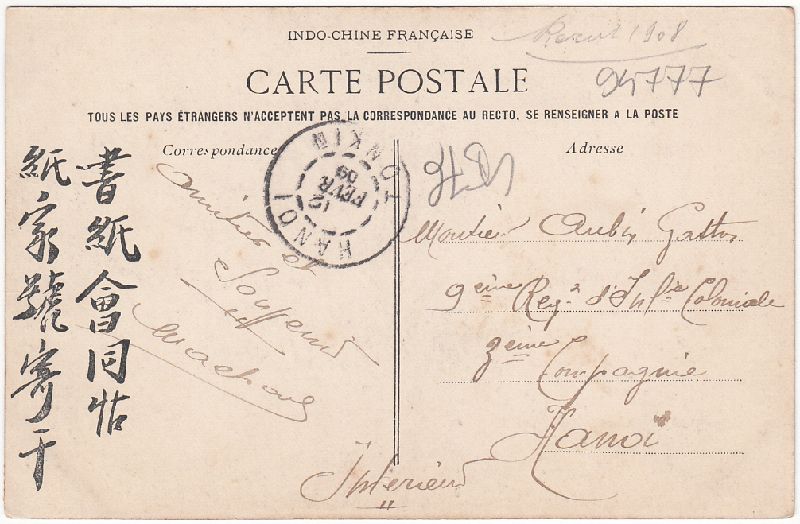 INDO-CHINE FRANÇAISE
1908
CARTE POSTALE
94777
TOUS LES PAYS ÉTRANGERS N'ACCEPTENT PAS LA CORRESPONDANCE AU RECTO, SE RENSEIGNER A LA POSTE
Correspondance
Adresse
HANOI
TONKIN
12
FEVR
09
書紙會同帖
紙家號寄于
Amitiés et
Souvenir
Aubin Gaston
9ème Regt d'Infie Coloniale
3ème Compagnie
Hanoï
Intérieur